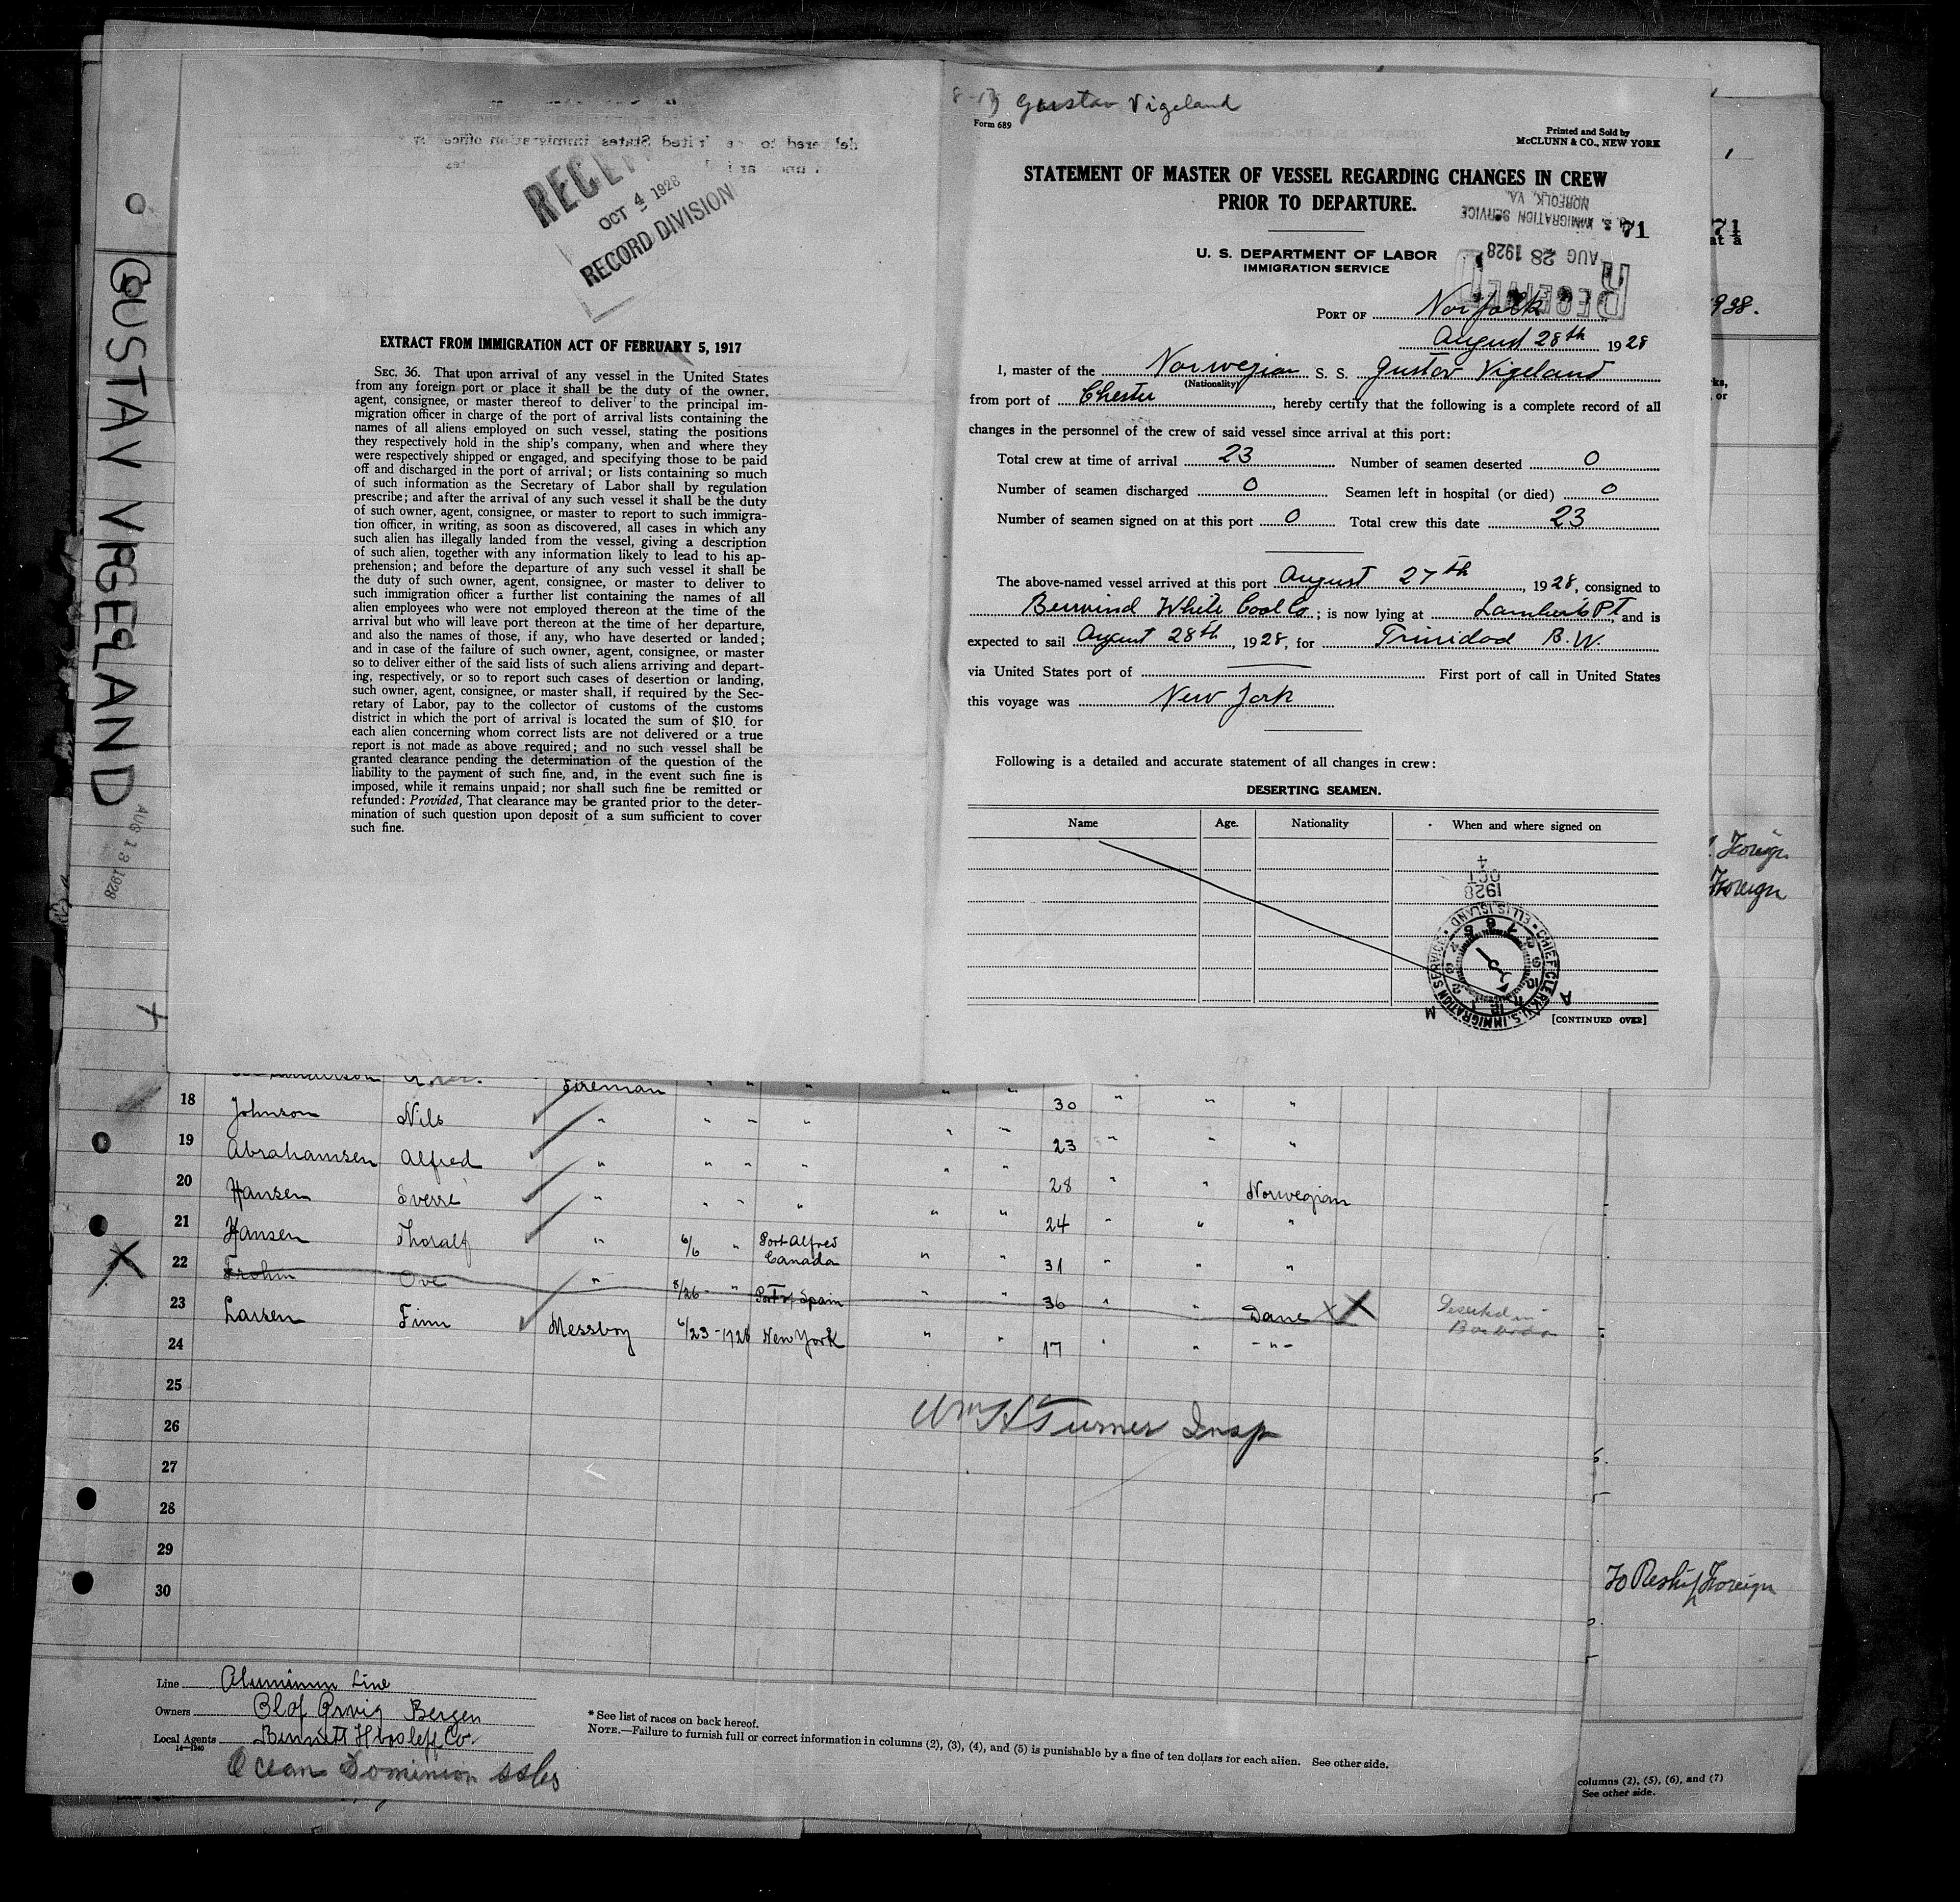 GUSTAV VIGELAND
AUG 13 1928
RECEIVED
OCT 4 1928
RECORD DIVISION
EXTRACT FROM IMMIGRATION ACT OF FEBRUARY 5, 1917
SEC. 36. That upon arrival of any vessel in the United States
from any foreign port or place it shall be the duty of the owner,
agent, consignee, or master thereof to deliver to the principal im-
migration officer in charge of the port of arrival lists containing the
names of all aliens employed on such vessel, stating the positions
they respectively hold in the ship's company, when and where they
were respectively shipped or engaged, and specifying those to be paid
off and discharged in the port of arrival; or lists containing so much
of such information as the Secretary of Labor shall by regulation
prescribe; and after the arrival of any such vessel it shall be the duty
of such owner, agent, consignee, or master to report to such immigra-
tion officer, in writing, as soon as discovered, all cases in which any
such alien has illegally landed from the vessel, giving a description
of such alien, together with any information likely to lead to his ap-
prehension; and before the departure of any such vessel it shall be
the duty of such owner, agent, consignee, or master to deliver to
such immigration officer a further list containing the names of all
alien employees who were not employed thereon at the time of the
arrival but who will leave port thereon at the time of her departure,
and also the names of those, if any, who have deserted or landed;
and in case of the failure of such owner, agent, consignee, or master
so to deliver either of the said lists of such aliens arriving and depart-
ing, respectively, or so to report such cases of desertion or landing,
such owner, agent, consignee, or master shall, if required by the Sec-
retary of Labor, pay to the collector of customs of the customs
district in which the port of arrival is located the sum of $10 for
each alien concerning whom correct lists are not delivered or a true
report is not made as above required; and no such vessel shall be
granted clearance pending the determination of the question of the
liability to the payment of such fine, and, in the event such fine is
imposed, while it remains unpaid; nor shall such fine be remitted or
refunded: Provided, That clearance may be granted prior to the deter-
mination of such question upon deposit of a sum sufficient to cover
such fine.
Gustav Vigeland
Form 689
Printed and Sold by
McCLUNN & CO., NEW YORK
STATEMENT OF MASTER OF VESSEL REGARDING CHANGES IN CREW
PRIOR TO DEPARTURE.
U. S. IMMIGRATION SERVICE
NORFOLK, VA.
AUG 28 1928
RECEIVED
71
U. S. DEPARTMENT OF LABOR
IMMIGRATION SERVICE
PORT OF Norfolk
August 28th 1928
I, master of the Norwegian S. S. Gustav Vigeland
(Nationality)
from port of Chester, hereby certify that the following is a complete record of all
changes in the personnel of the crew of said vessel since arrival at this port:
Total crew at time of arrival 23 Number of seamen deserted 0
Number of seamen discharged 0 Seamen left in hospital (or died) 0
Number of seamen signed on at this port 0 Total crew this date 23
The above-named vessel arrived at this port August 27th, 1928, consigned to
Berwind White Coal Co; is now lying at Lamberts Pt, and is
expected to sail August 28th, 1928, for Trinidad B. W.
via United States port of First port of call in United States
this voyage was New York
Following is a detailed and accurate statement of all changes in crew:
DESERTING SEAMEN.
Name Age. Nationality When and where signed on
1928
OCT
4
CHIEF CLERK U.S. IMMIGRATION SERVICE ELLIS ISLAND
[CONTINUED OVER]
71½
at a
Foreign
Foreign
To Reship Foreign
Fireman
18 Johnson Nils " " " " " " 30 " " "
19 Abrahamsen Alfred " " " " " " 23 " " "
20 Hansen Sverre " " " " " " 28 " " Norwegian
21 Hansen Thoralf " " " " " " 24 " " "
22 Frohm Ove " 6/6 " Port Alfred Canada " " 31 " " "
23 Larsen Finn Messboy 8/26 " Port of Spain " " 36 " " Dane X X Deserted in Barbados
24 6/23-1928 New York " " 17 " " -"-
25
26
Wm H Turner Insp
27
28
29
30
Line Aluminum Line
Owners Olaf Orvig Bergen
Local Agents Bennett Hvosleff Co.
14—1240
Ocean Dominion ssCo
* See list of races on back hereof.
NOTE.—Failure to furnish full or correct information in columns (2), (3), (4), and (5) is punishable by a fine of ten dollars for each alien. See other side.
columns (2), (5), (6), and (7)
See other side.